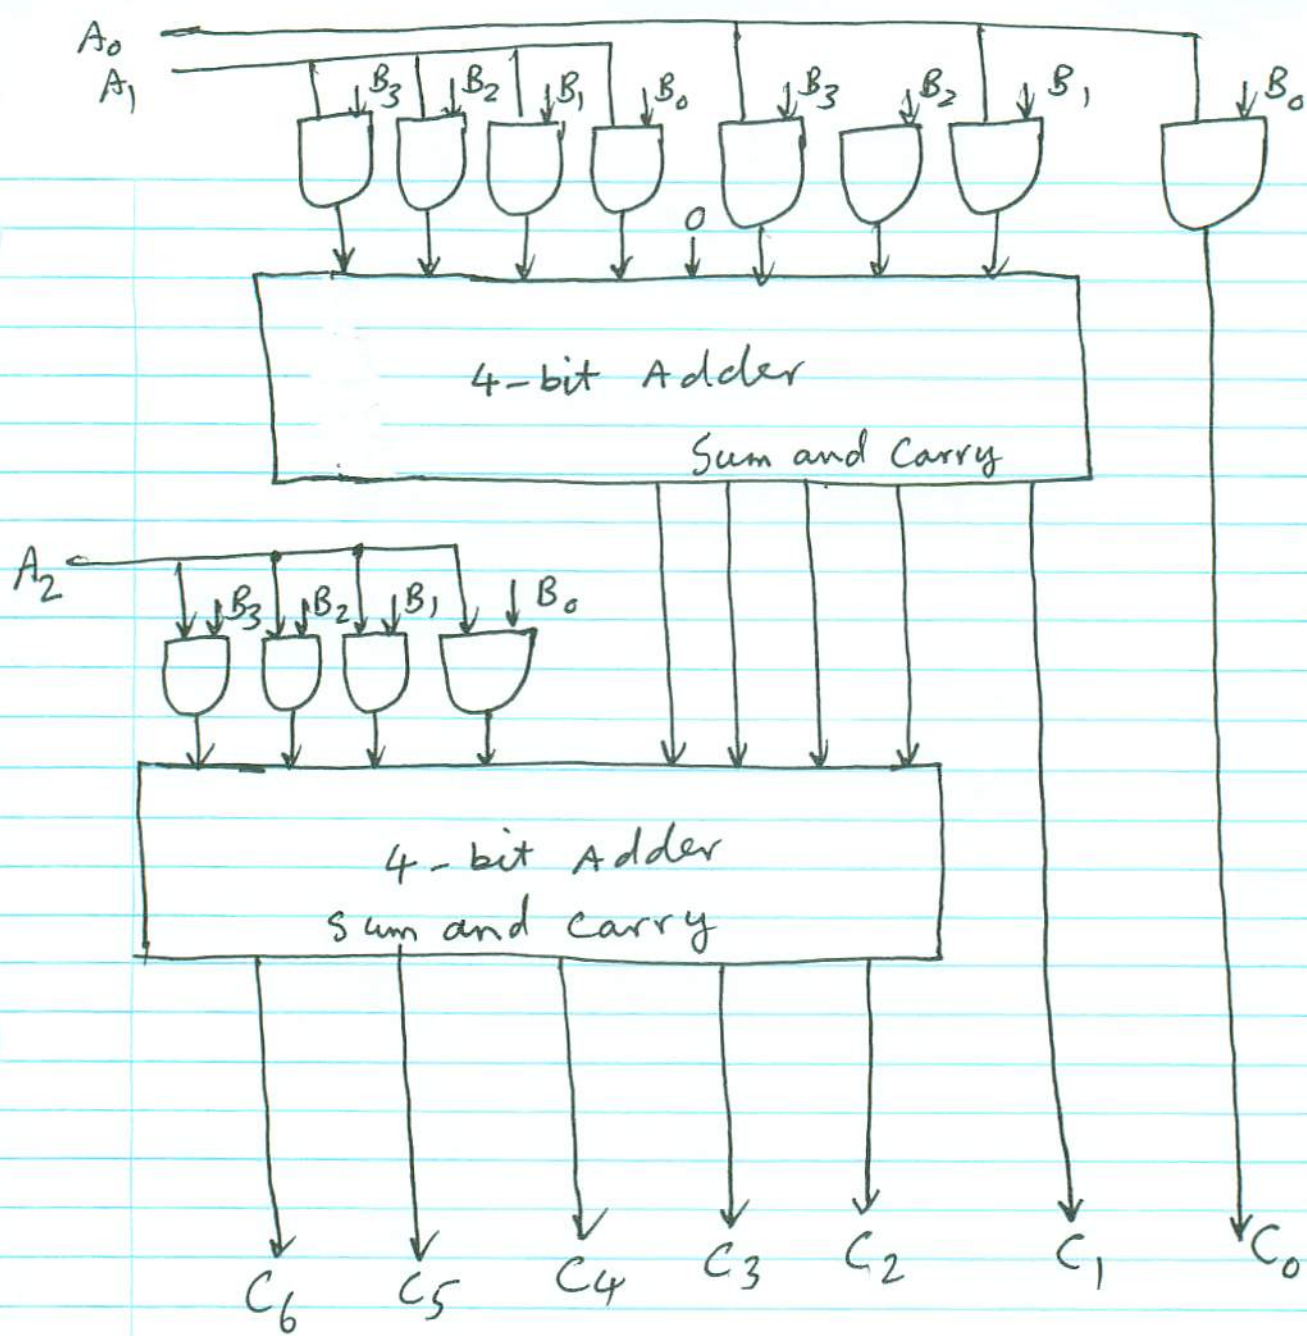 A₀
A₁
B₃ B₂ B₁ B₀ B₃ B₂ B₁ B₀
0
4-bit Adder
Sum and Carry
A₂
B₃ B₂ B₁ B₀
4-bit Adder
Sum and Carry
C₆ C₅ C₄ C₃ C₂ C₁ C₀